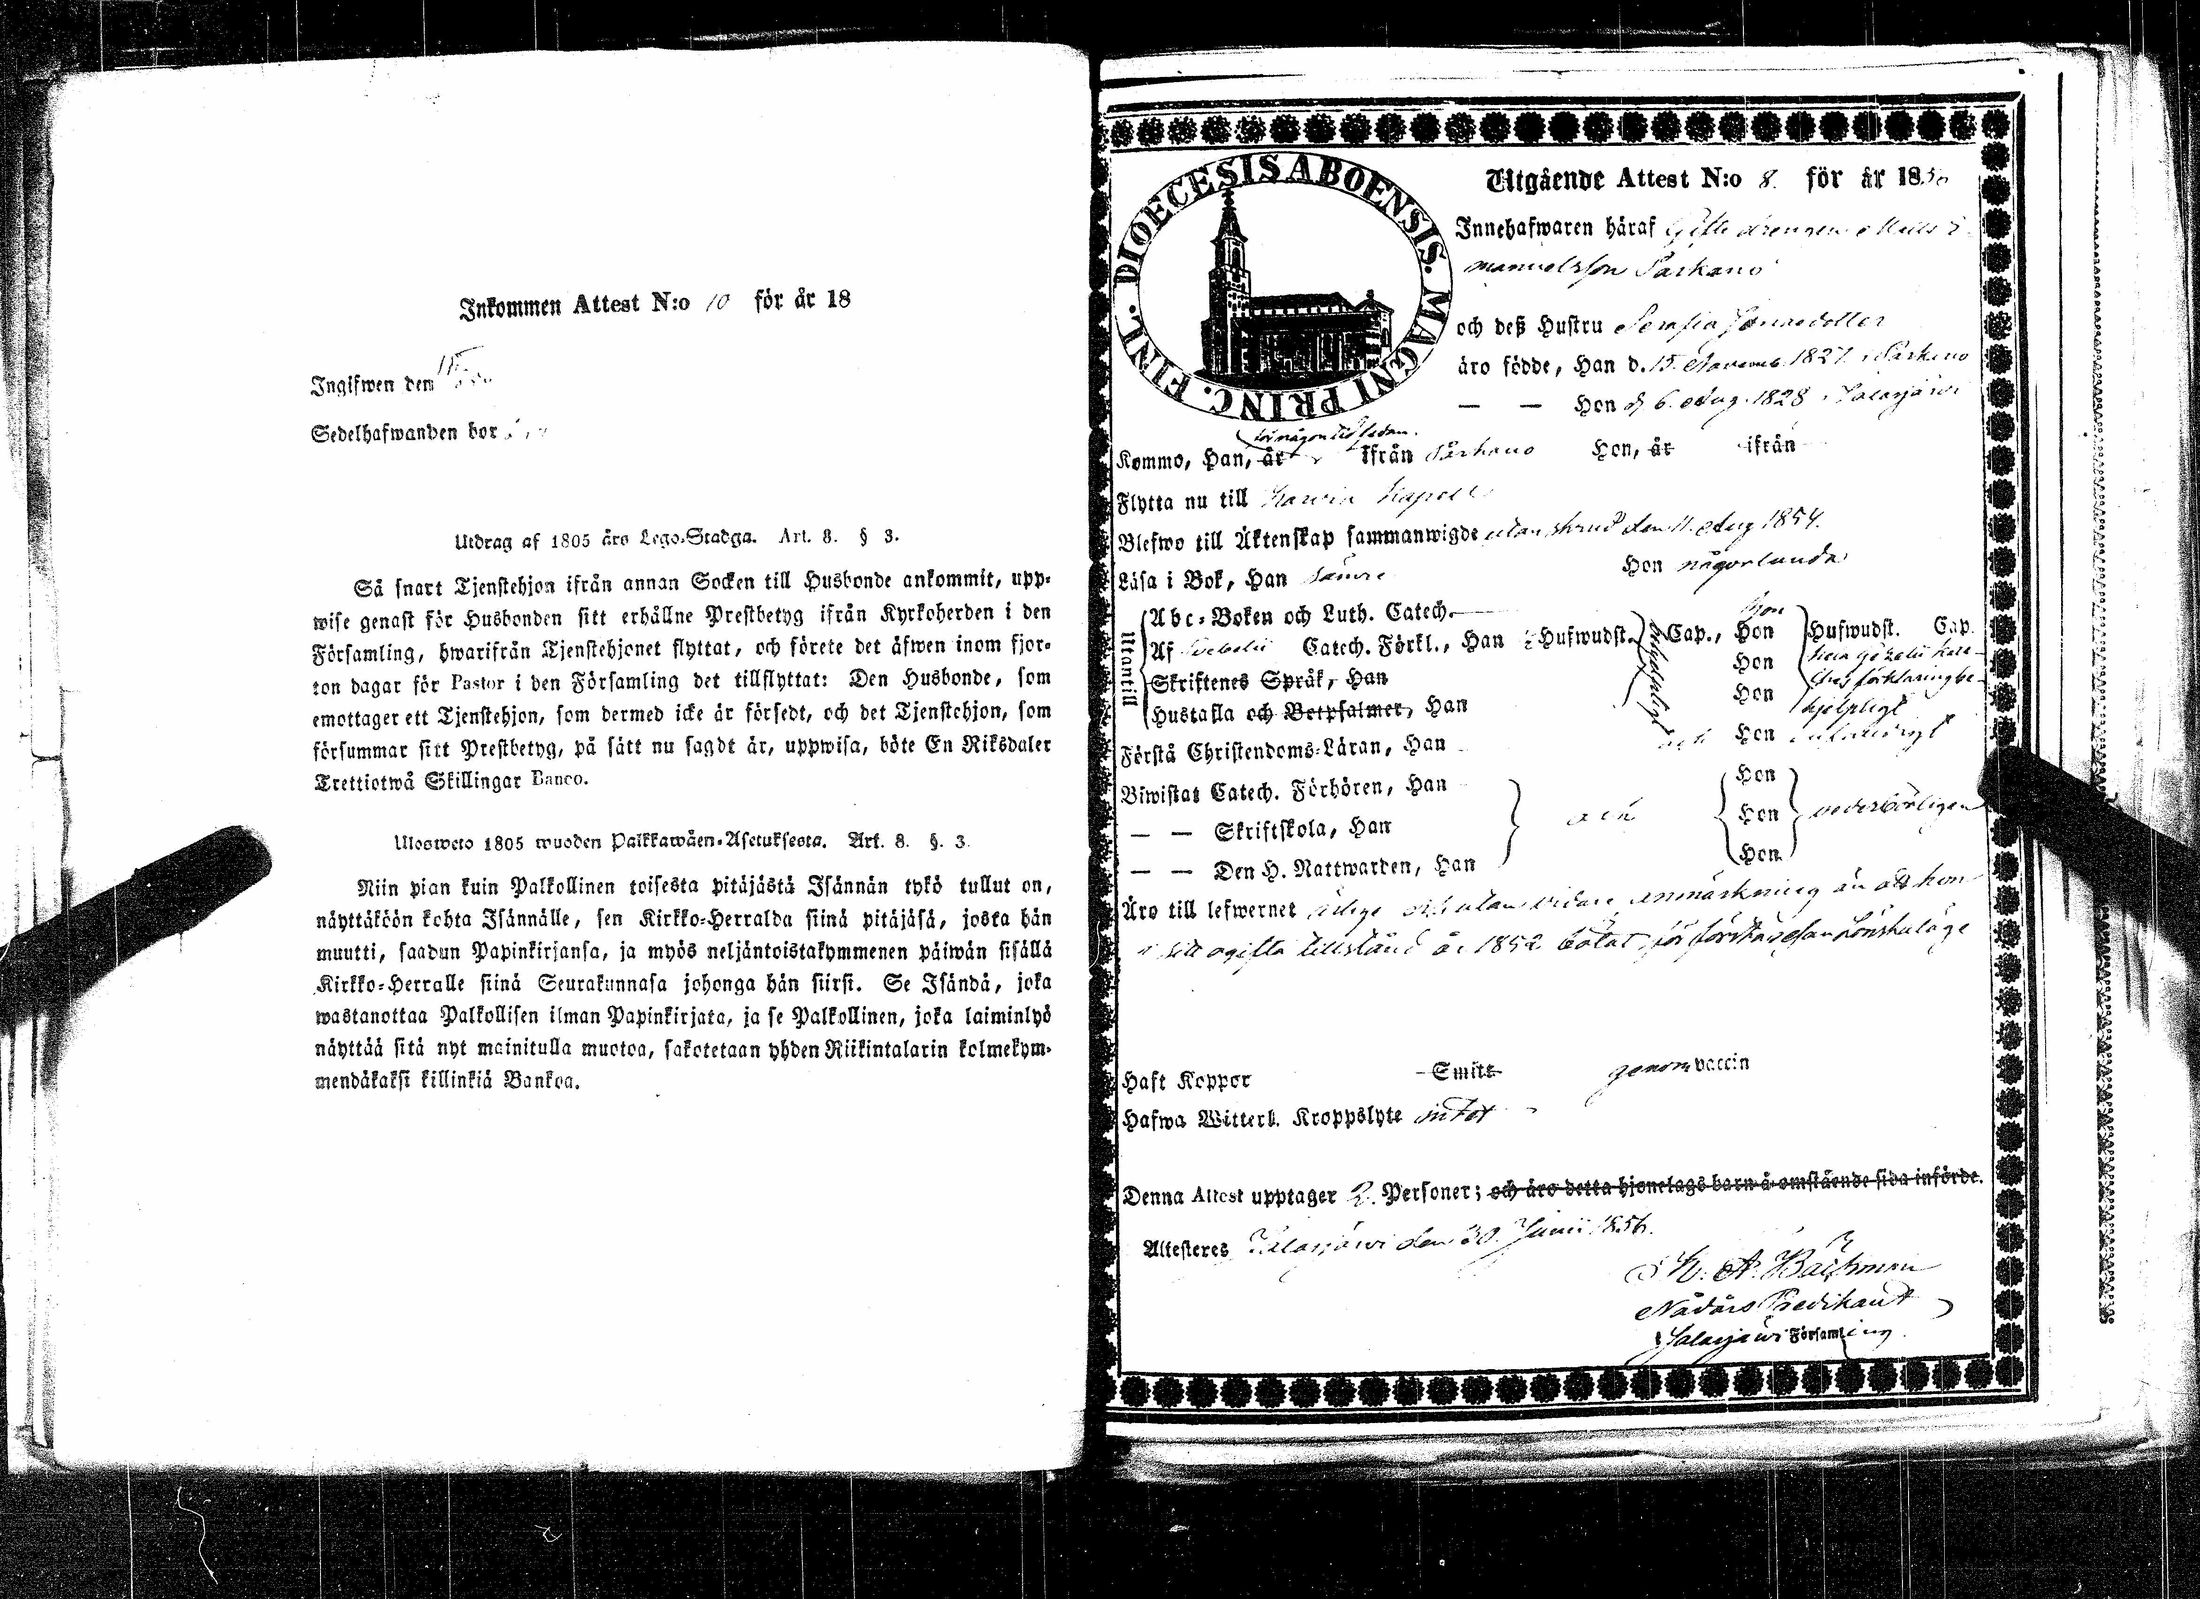 Inkommen Attest N:o 10 för år 18
Ingifwen den
Sedelhafwanden bor
Utdrag af 1805 års Lego-Stadga. Art. 8. § 3.
Så snart Tjenstehjon ifrån annan Socken till Husbonde ankommit, upp-
wise genast för Husbonden sitt erhållne Prestbetyg ifrån Kyrkoherden i den
Församling, hwarifrån Tjenstehjonet flyttat, och förete det äfwen inom fjor-
ton dagar för Pastor i den Församling det tillflyttat: Den Husbonde, som
emottager ett Tjenstehjon, som dermed icke är försedt, och det Tjenstehjon, som
försummar sitt Prestbetyg, på sätt nu sagdt är, uppwisa, böte En Riksdaler
Trettiotwå Skillingar Banco.
Ulosweto 1805 wuoden Palkkawäen-Asetuksesta. Art. 8. §. 3.
Niin pian kuin Palkollinen toisesta pitäjästä Isännän tykö tullut on,
näyttäköön kohta Isännälle, sen Kirkko-Herralda siinä pitäjäsä, josta hän
muutti, saadun Papinkirjansa, ja myös neljäntoistakymmenen päiwän sisällä
Kirkko-Herralle siinä Seurakunnasa johonga hän siirsi. Se Isändä, joka
wastanottaa Palkollisen ilman Papinkirjata, ja se Palkollinen, joka laiminlyö
näyttää sitä nyt mainitulla muotoa, sakotetaan yhden Riikintalarin kolmekym-
mendäkaksi killinkiä Bankoa.
DIOECESIS ABOENSIS. MAGNI PRINC. FINL.
Utgående Attest N:o 8. för år 185
Innehafwaren häraf Gifte drengen Matts E-
manuelsson Parkano
och deß Hustru Serafia Jonnasdotter
äro födde, Han d. 15. Novemb. 1827 i Parkano
— — Hon d. 6. Aug. 1828 i Jalasjärvi
för någon tid sedan
Kommo, Han, år ifrån Parkano Hon, år ifrån
Flytta nu till Karvia Kapell
Blefwo till Äktenskap sammanwigde utan skrud den 11. Aug 1854.
Läsa i Bok, Han sämre Hon någorlunda
Utantill
Abc-Boken och Luth. Catech. Hon
Af Svebelii Catech. Förkl., Han Hufwudst. Cap., Hon Hufwudst. Cap.
Skriftenes Språk, Han Hon
Hustafla och Botpsalmer, Han Hon hjelpligt
Förstå Christendoms-Läran, Han och Hon
Biwistat Catech. Förhören, Han Hon
— — Skriftskola, Han och Hon vederbörligen
— — Den H. Nattwarden, Han Hon
Äro till lefwernet ärlige och utan vidare anmärkning än att hon
i sitt ogifta tillstånd år 1852 bötat för första resan Lönskaläge
Haft Koppor Smitt genom vaccin
Hafwa Witterl. Kroppslyte intet
Denna Attest upptager 2. Personer; och äro detta hjonelags barn å omstående sida införde.
Attesteres Jalasjärvi den 30. Junii 1856.
Bäckman
Nådårs Predikant
i Jalasjärvi Församling.